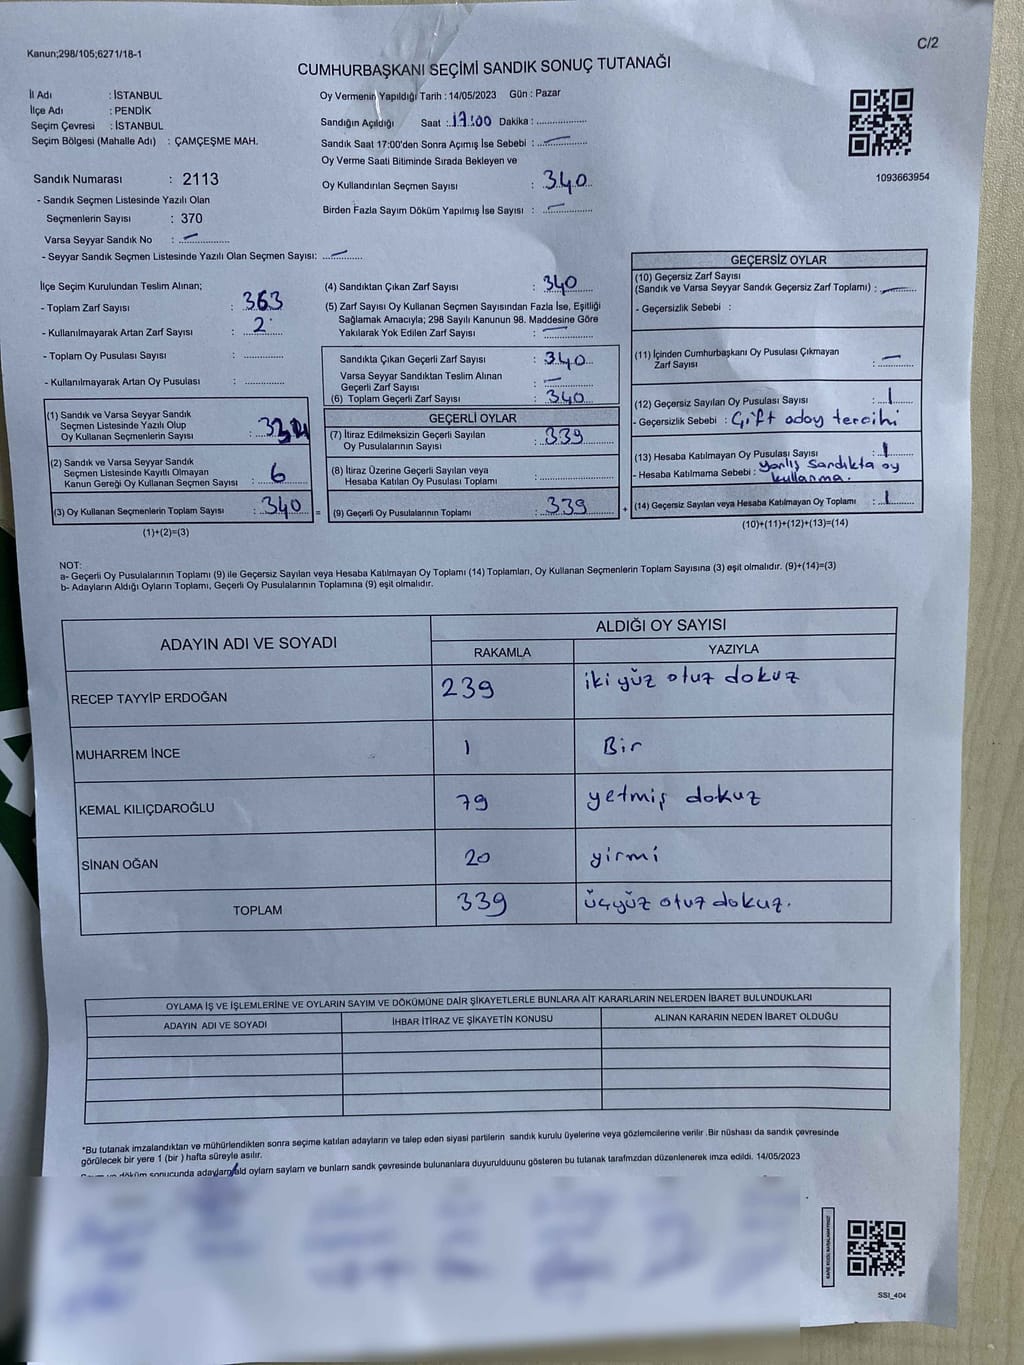 Kanun;298/105;6271/18-1
C/2
CUMHURBAŞKANI SEÇİMİ SANDIK SONUÇ TUTANAĞI
İl Adı : İSTANBUL
İlçe Adı : PENDİK
Seçim Çevresi : İSTANBUL
Seçim Bölgesi (Mahalle Adı) : ÇAMÇEŞME MAH.
Sandık Numarası : 2113
- Sandık Seçmen Listesinde Yazılı Olan
Seçmenlerin Sayısı : 370
Varsa Seyyar Sandık No : —
- Seyyar Sandık Seçmen Listesinde Yazılı Olan Seçmen Sayısı: —
Oy Vermenin Yapıldığı Tarih : 14/05/2023 Gün : Pazar
Sandığın Açıldığı Saat : 17:00 Dakika : ................
Sandık Saat 17:00'den Sonra Açımış İse Sebebi : —
Oy Verme Saati Bitiminde Sırada Bekleyen ve
Oy Kullandırılan Seçmen Sayısı : 340
Birden Fazla Sayım Döküm Yapılmış İse Sayısı : —
1093663954
İlçe Seçim Kurulundan Teslim Alınan;
- Toplam Zarf Sayısı : 363
- Kullanılmayarak Artan Zarf Sayısı : 2
- Toplam Oy Pusulası Sayısı : .............
- Kullanılmayarak Artan Oy Pusulası : .............
(1) Sandık ve Varsa Seyyar Sandık
Seçmen Listesinde Yazılı Olup
Oy Kullanan Seçmenlerin Sayısı : 334
(2) Sandık ve Varsa Seyyar Sandık
Seçmen Listesinde Kayıtlı Olmayan
Kanun Gereği Oy Kullanan Seçmen Sayısı : 6
(3) Oy Kullanan Seçmenlerin Toplam Sayısı : 340
(1)+(2)=(3)
=
(4) Sandıktan Çıkan Zarf Sayısı : 340
(5) Zarf Sayısı Oy Kullanan Seçmen Sayısından Fazla İse, Eşitliği
Sağlamak Amacıyla; 298 Sayılı Kanunun 98. Maddesine Göre
Yakılarak Yok Edilen Zarf Sayısı : —
Sandıkta Çıkan Geçerli Zarf Sayısı : 340
Varsa Seyyar Sandıktan Teslim Alınan
Geçerli Zarf Sayısı : —
(6) Toplam Geçerli Zarf Sayısı : 340
GEÇERLİ OYLAR
(7) İtiraz Edilmeksizin Geçerli Sayılan
Oy Pusulalarının Sayısı : 339
(8) İtiraz Üzerine Geçerli Sayılan veya
Hesaba Katılan Oy Pusulası Toplamı : ...................
(9) Geçerli Oy Pusulalarının Toplamı : 339
+
GEÇERSİZ OYLAR
(10) Geçersiz Zarf Sayısı
(Sandık ve Varsa Seyyar Sandık Geçersiz Zarf Toplamı) : —
- Geçersizlik Sebebi :
(11) İçinden Cumhurbaşkanı Oy Pusulası Çıkmayan
Zarf Sayısı : —
(12) Geçersiz Sayılan Oy Pusulası Sayısı : 1
- Geçersizlik Sebebi : Çift aday tercihi
(13) Hesaba Katılmayan Oy Pusulası Sayısı : 1
- Hesaba Katılmama Sebebi : yanlış sandıkta oy
kullanma.
(14) Geçersiz Sayılan veya Hesaba Katılmayan Oy Toplamı : 1
(10)+(11)+(12)+(13)=(14)
NOT:
a- Geçerli Oy Pusulalarının Toplamı (9) ile Geçersiz Sayılan veya Hesaba Katılmayan Oy Toplamı (14) Toplamları, Oy Kullanan Seçmenlerin Toplam Sayısına (3) eşit olmalıdır. (9)+(14)=(3)
b- Adayların Aldığı Oyların Toplamı, Geçerli Oy Pusulalarının Toplamına (9) eşit olmalıdır.
ADAYIN ADI VE SOYADI
ALDIĞI OY SAYISI
RAKAMLA YAZIYLA
RECEP TAYYİP ERDOĞAN 239 iki yüz otuz dokuz
MUHARREM İNCE 1 Bir
KEMAL KILIÇDAROĞLU 79 yetmiş dokuz
SİNAN OĞAN 20 yirmi
TOPLAM 339 üçyüz otuz dokuz.
OYLAMA İŞ VE İŞLEMLERİNE VE OYLARIN SAYIM VE DÖKÜMÜNE DAİR ŞİKAYETLERLE BUNLARA AİT KARARLARIN NELERDEN İBARET BULUNDUKLARI
ADAYIN ADI VE SOYADI İHBAR İTİRAZ VE ŞİKAYETİN KONUSU ALINAN KARARIN NEDEN İBARET OLDUĞU
*Bu tutanak imzalandıktan ve mühürlendikten sonra seçime katılan adayların ve talep eden siyasi partilerin sandık kurulu üyelerine veya gözlemcilerine verilir .Bir nüshası da sandık çevresinde
görülecek bir yere 1 (bir ) hafta süreyle asılır.
döküm sonucunda adayların/ald oyların sayların ve bunların sandk çevresinde bulunanlara duyurulduunu gösteren bu tutanak tarafmzdan düzenlenerek imza edildi. 14/05/2023
SSI_404